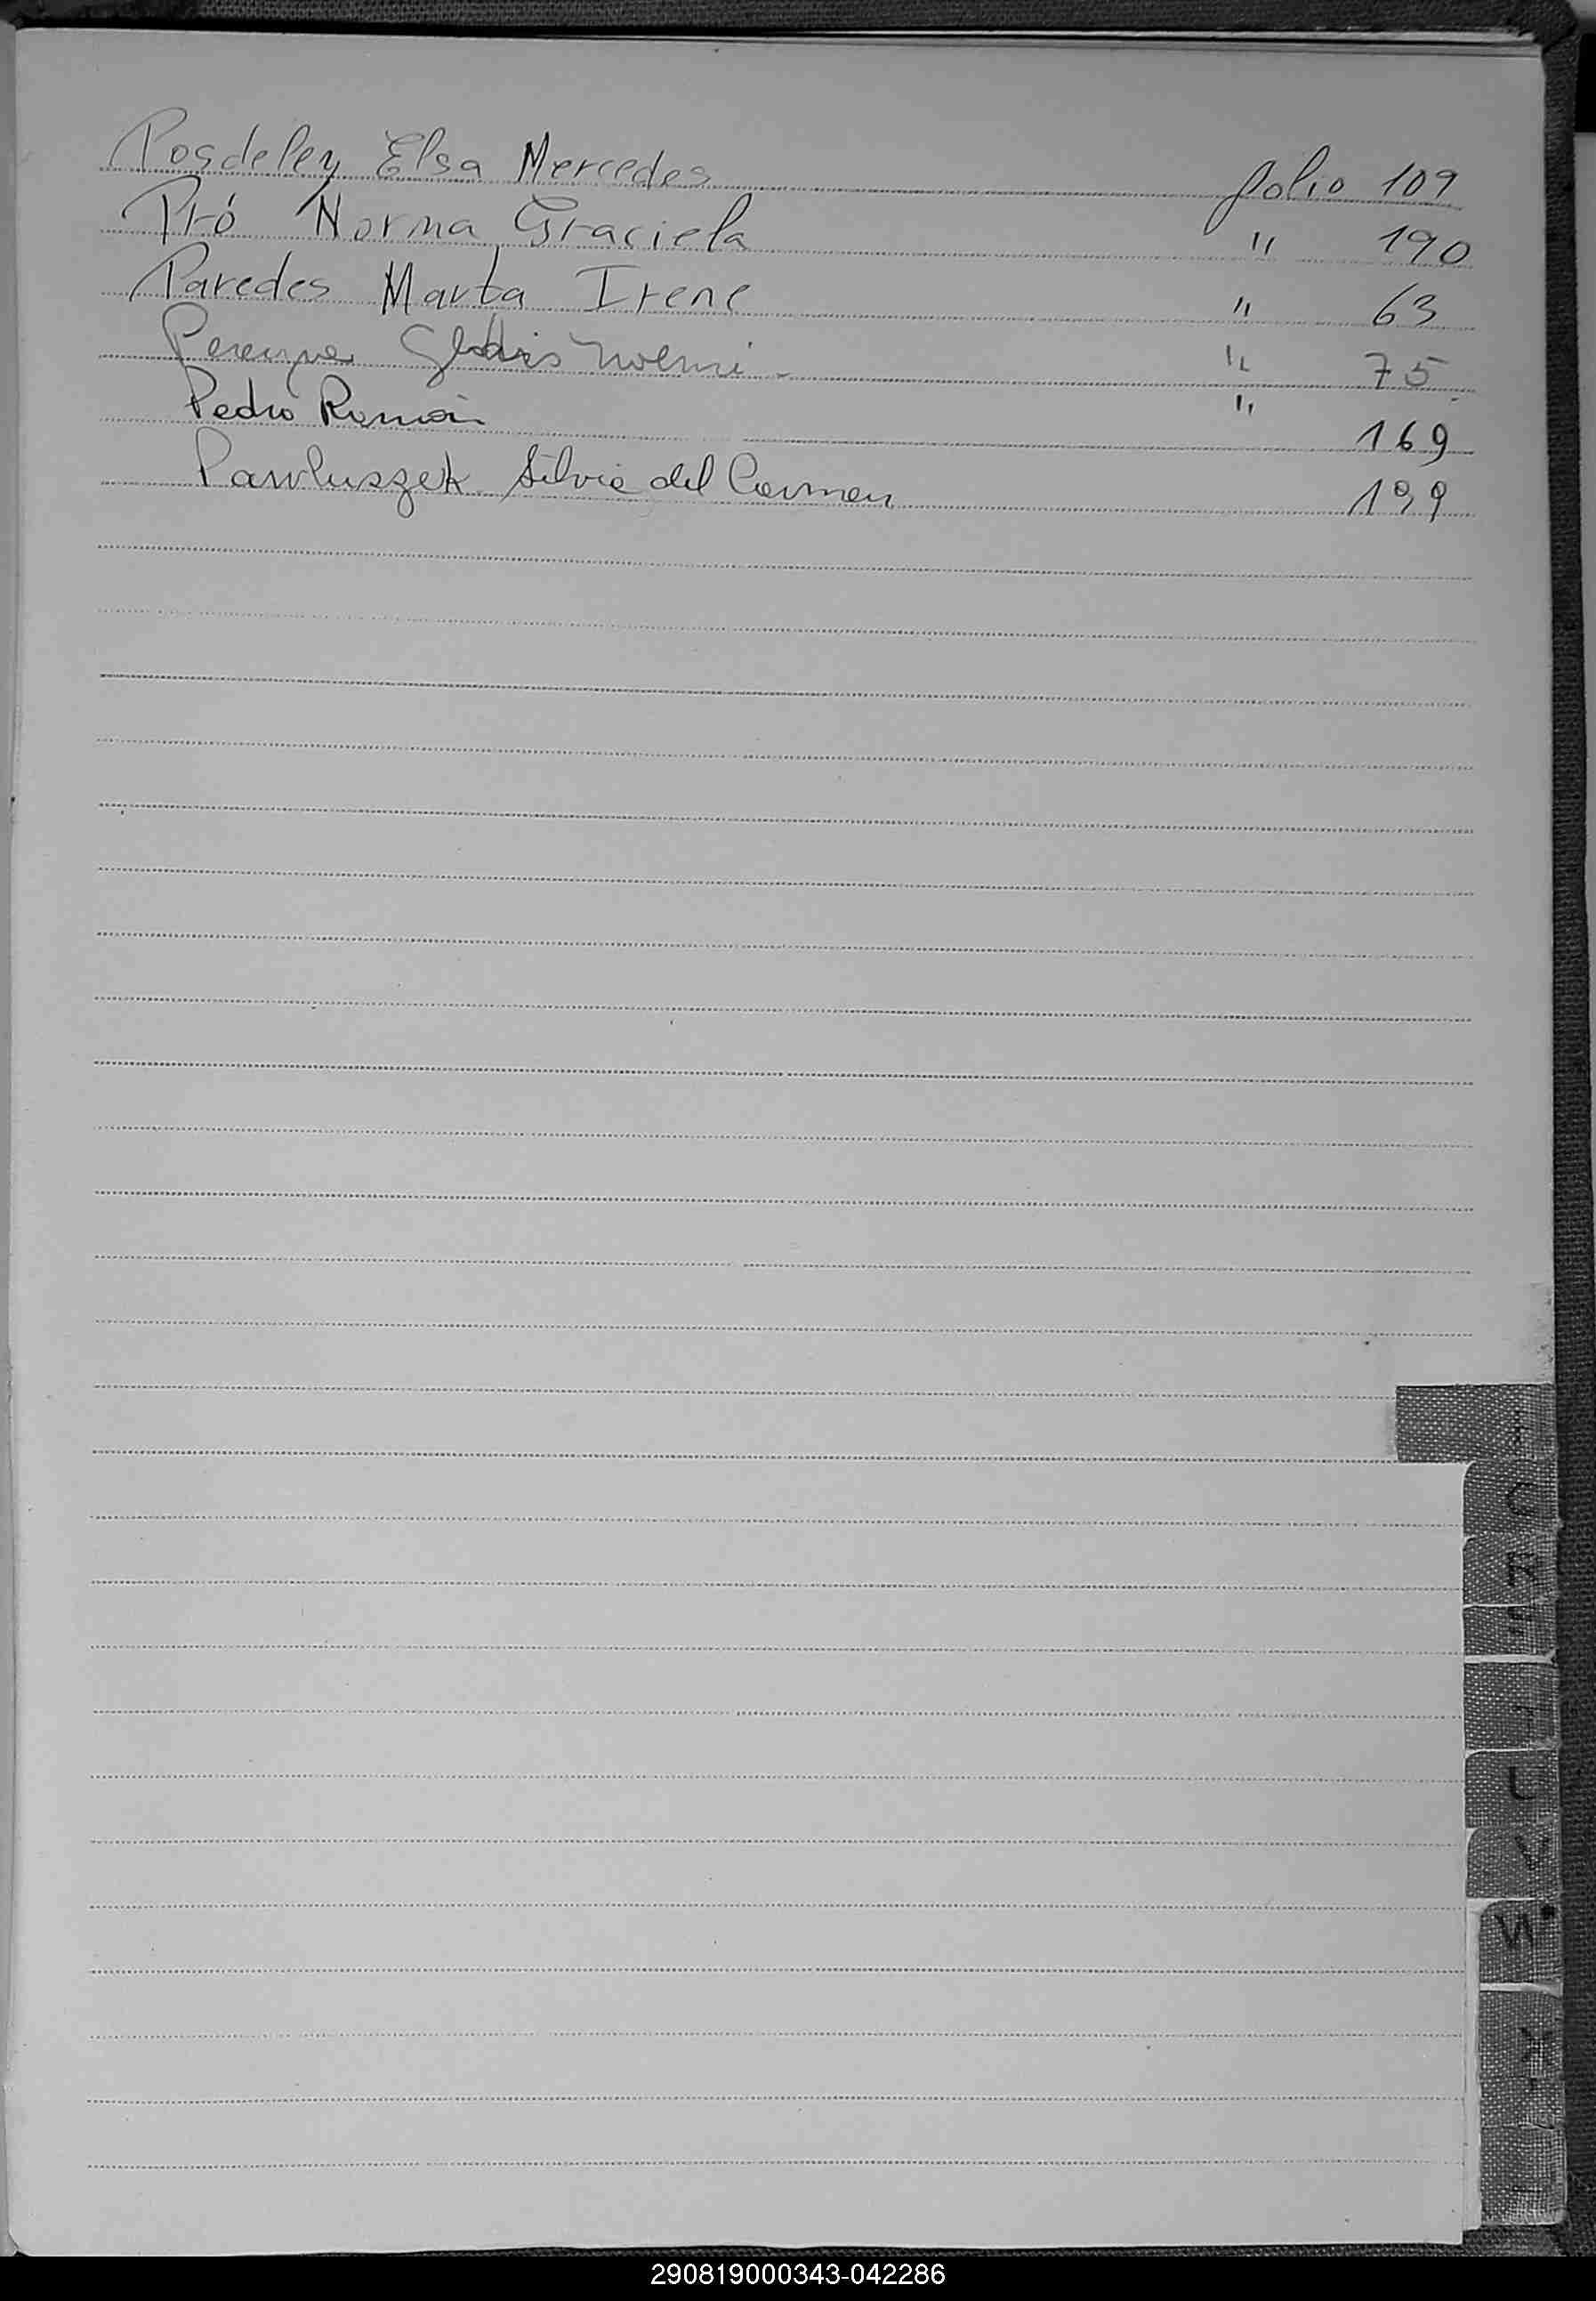 Posdeley Elsa Mercedes folio 109
Pró Norma Graciela " 190
Paredes Marta Irene " 63
Pereyra Gladis Noemi - " 75
Pedro Román " 169
Pawluszek Silvia del Carmen 199
R
U
V
W
X
290819000343-042286